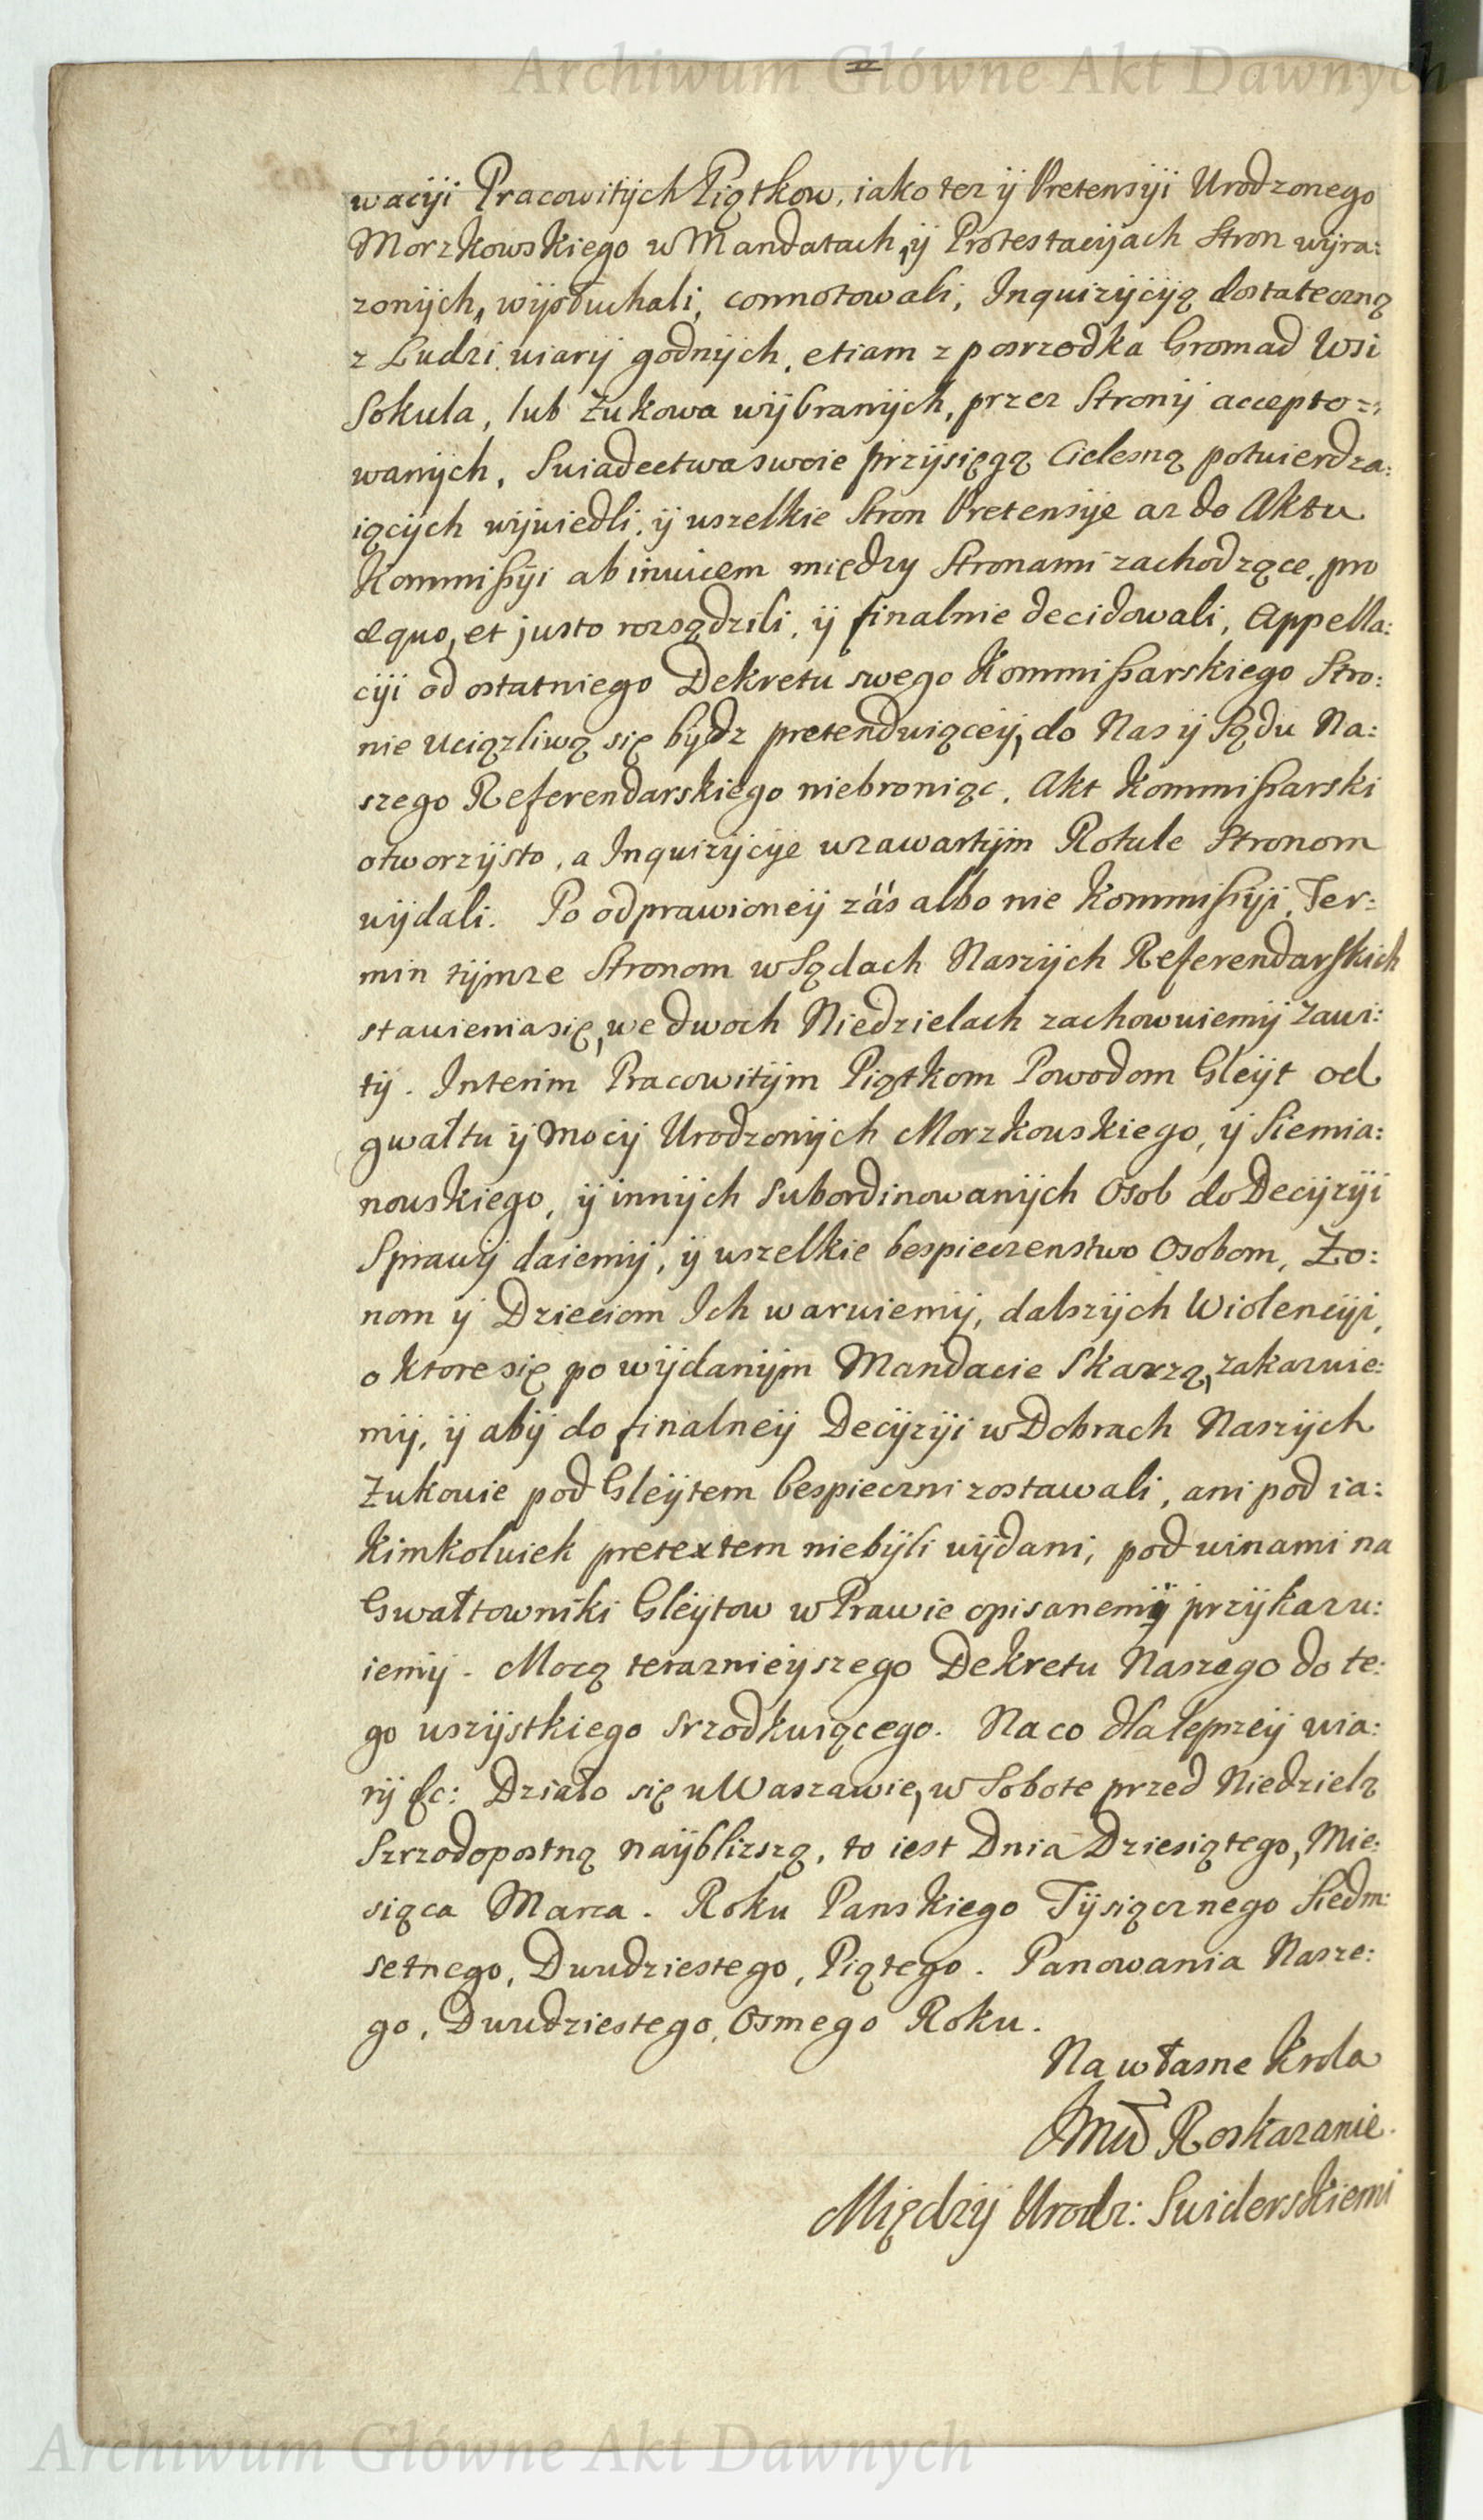 Archiwum Główne Akt Dawnych
wacÿi Pracowitÿch Piątkow, iako tez ÿ Pretensÿi Urodzonego
Morzkowskiego w Mandatach, ÿ Protestacÿjach Stron wÿra:
zonÿch, wÿsłuchali, connotowali, Inquizÿcÿą dostateczną
z Ludzi wiarÿ godnÿch, etiam z posrzodka Gromad Wsi
Sokula, lub Żukowa wÿbranÿch, przez Stronÿ accepto=
wanÿch, Swiadectwa swoie przÿsięgą Cielesną potwierdza:
iącÿch wÿwiedli, ÿ wszelkie Stron Pretensÿe az do Aktu
Kommißÿi ab invicem między Stronami zachodzące, pro
æquo, et justo rozsądzili, ÿ finalnie decidowali, Appella:
cÿi od ostatniego Dekretu swego Kommißarskiego Stro:
nie uciązliwą się bÿdz pretenduiąceÿ, do Nas ÿ Sądu Na:
szego Referendarskiego niebroniąc, Akt Kommißarski
otworzÿsto, a Inquizÿcÿe w zawartÿm Rotule Stronom
wÿdali. Po odprawioneÿ zás albo nie Kommißÿi, Ter:
min tÿmze Stronom w Sądach Naszÿch Referendarskich
stawienia się, we dwoch Niedzielach zachowuiemÿ zawi:
tÿ. Interim Pracowitÿm Piątkom Powodom Gleÿt od
gwałtu ÿ mocÿ Urodzonÿch Morzkowskiego, ÿ Siemia:
nowskiego, ÿ innÿch subordinowanÿch Osob do Decÿzÿi
Sprawÿ daiemÿ, ÿ wszelkie bespieczenstwo Osobom, Żo:
nom ÿ Dzieciom Ich waruiemÿ, dalszÿch Wiolencÿi,
o ktore się po wÿdanÿm Mandacie Skarzą, zakazuie:
mÿ, ÿ abÿ do finalneÿ Decÿzÿi w Dobrach Naszÿch
Żukowie pod Gleÿtem bespieczni zostawali, ani pod ia:
kimkolwiek pretextem niebÿli wÿdani, pod winami na
Gwałtowniki Gleÿtow w Prawie opisanemÿ przÿkazu:
iemÿ. Mocą terazniejszego Dekretu Naszego do te:
go wszÿstkiego srzodkuiącego. Na co dla lepszeÿ wia:
rÿ &c: Działo się w Warszawie, w Sobote przed Niedzielą
Szrzodopostną naÿblizszą, to iest Dnia Dziesiątego, Mie:
siąca Marca. Roku Panskiego Tÿsiącznego Siedm:
setnego, Dwudziestego, Piątego. Panowania Nasze:
go, Dwudziestego, Osmego Roku.
Na własne Krola
Roskazanie.
Międzÿ Urodz: Swiderskiemi
Archiwum Główne Akt Dawnych